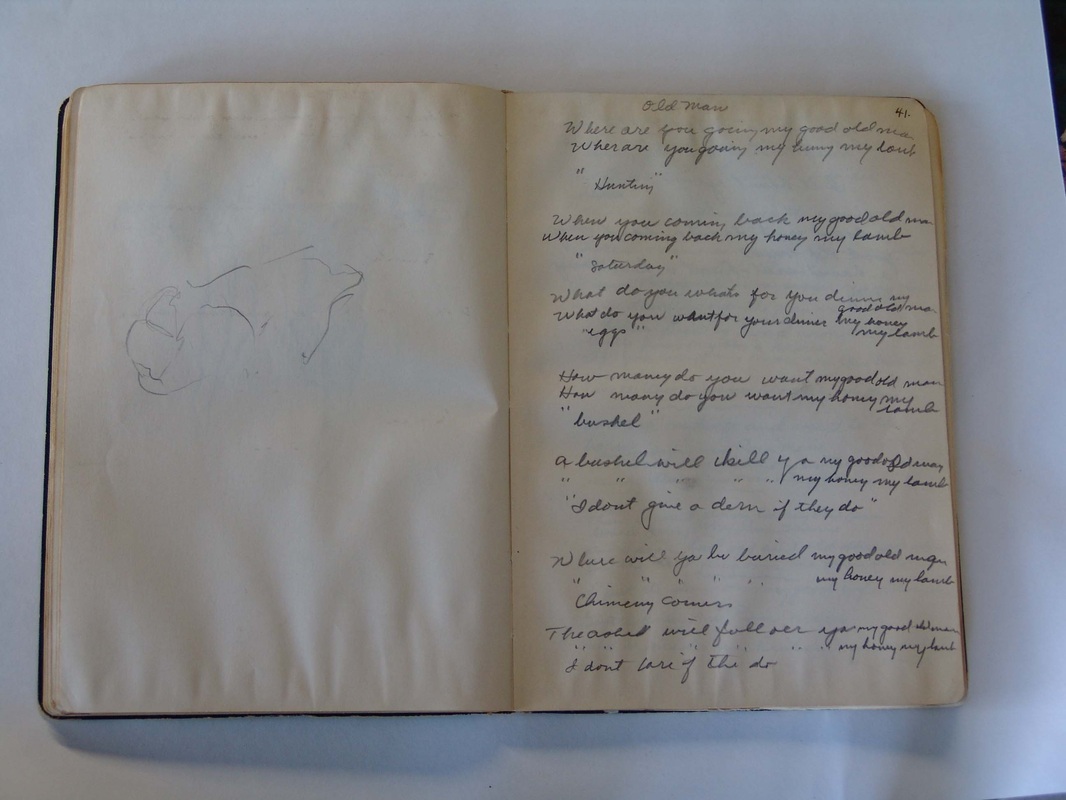 Old Man
41.
Where are you going my good old man
Wher are you going my huny my lamb
"Hunting"
When you coming back my good old man
When you coming back my honey my lamb
"Saturday"
What do you wants for you dinner my
good old man
What do you want for your dinner my honey
my lamb
"eggs"
How maney do you want my good old man
How many do you want my honey my
lamb
"bushel"
A bushel will kill ya my good old man
" " " " " my honey my lamb
"I dont give a dern if they do"
Where will ya be buried my good old man
" " " " " my honey my lamb
Chimeny Corners
The ashes will fall over ya my good old man
" " " " " my honey my lamb
I don't care if the do